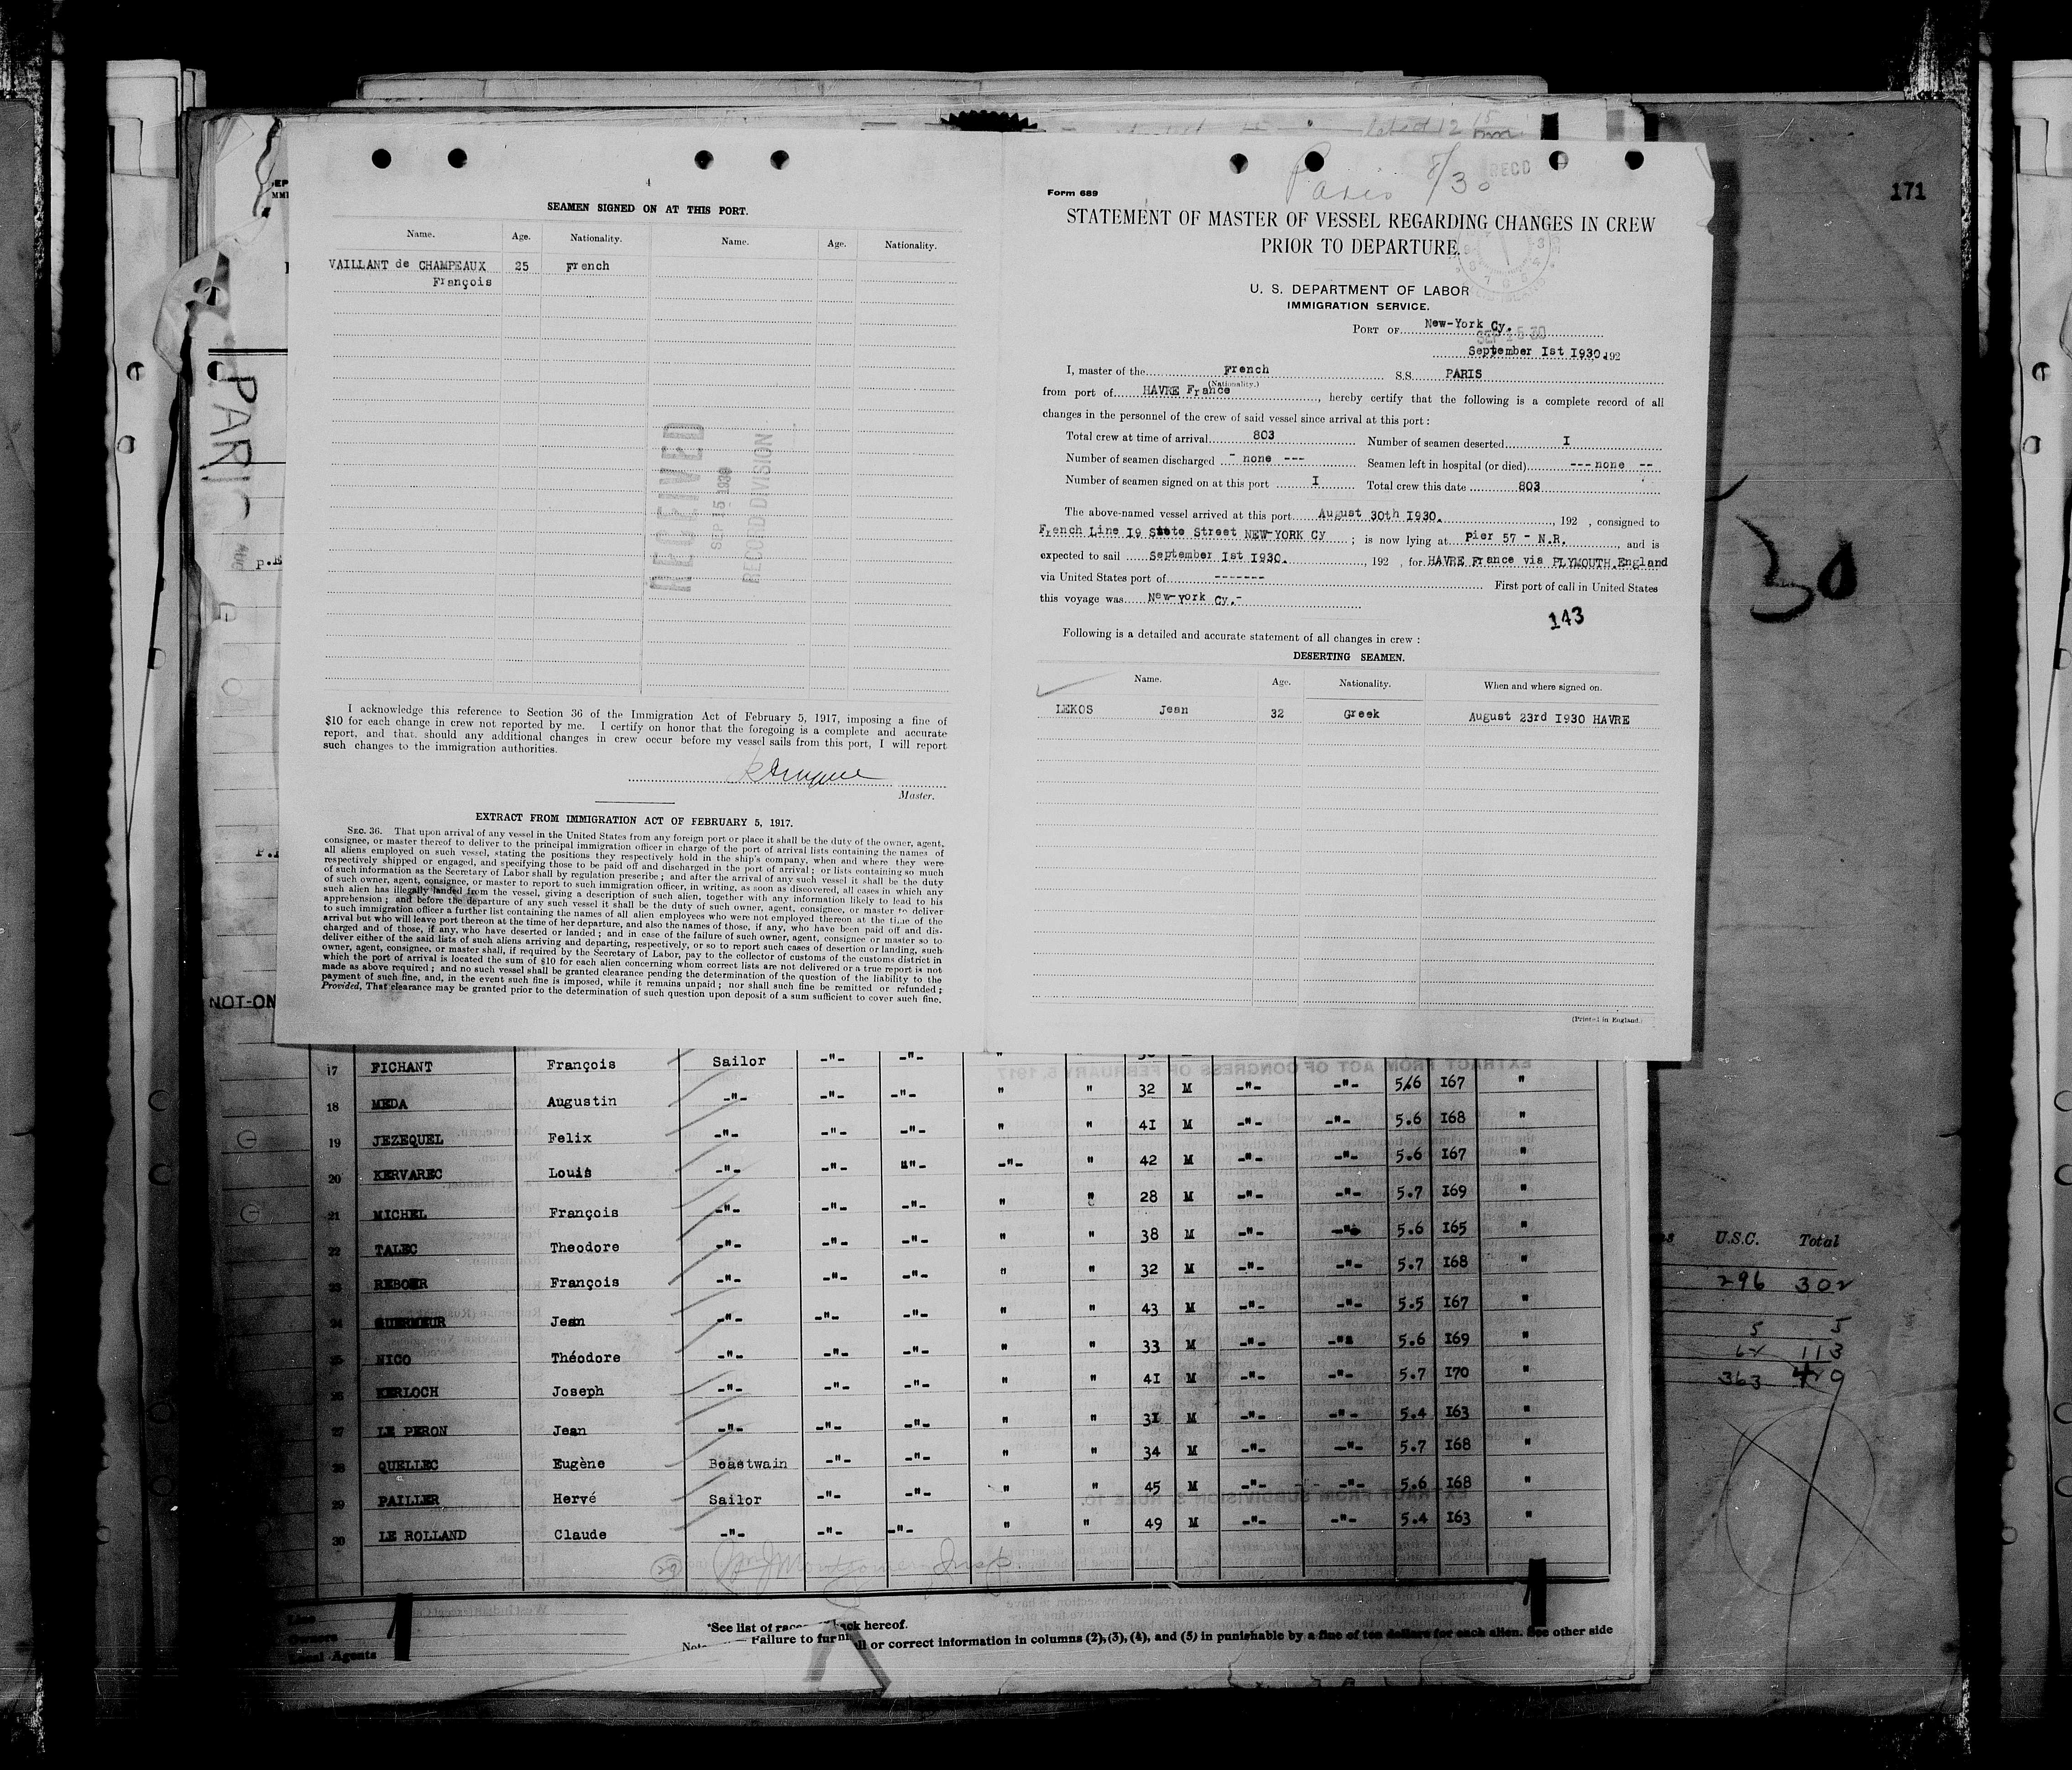 171
4
SEAMEN SIGNED ON AT THIS PORT.
Name. Age. Nationality. Name. Age. Nationality.
VAILLANT de CHAMPEAUX 25 French
François
RECEIVED
SEP 15 1930
RECORD DIVISION
I acknowledge this reference to Section 36 of the Immigration Act of February 5, 1917, imposing a fine of
$10 for each change in crew not reported by me. I certify on honor that the foregoing is a complete and accurate
report, and that should any additional changes in crew occur before my vessel sails from this port, I will report
such changes to the immigration authorities.
Master.
EXTRACT FROM IMMIGRATION ACT OF FEBRUARY 5, 1917.
SEC. 36. That upon arrival of any vessel in the United States from any foreign port or place it shall be the duty of the owner, agent,
consignee, or master thereof to deliver to the principal immigration officer in charge of the port of arrival lists containing the names of
all aliens employed on such vessel, stating the positions they respectively hold in the ship's company, when and where they were
respectively shipped or engaged, and specifying those to be paid off and discharged in the port of arrival; or lists containing so much
of such information as the Secretary of Labor shall by regulation prescribe; and after the arrival of any such vessel it shall be the duty
of such owner, agent, consignee, or master to report to such immigration officer, in writing, as soon as discovered, all cases in which any
such alien has illegally landed from the vessel, giving a description of such alien, together with any information likely to lead to his
apprehension; and before the departure of any such vessel it shall be the duty of such owner, agent, consignee, or master to deliver
to such immigration officer a further list containing the names of all alien employees who were not employed thereon at the time of the
arrival but who will leave port thereon at the time of her departure, and also the names of those, if any, who have been paid off and dis-
charged and of those, if any, who have deserted or landed; and in case of the failure of such owner, agent, consignee or master so to
deliver either of the said lists of such aliens arriving and departing, respectively, or so to report such cases of desertion or landing, such
owner, agent, consignee, or master shall, if required by the Secretary of Labor, pay to the collector of customs of the customs district in
which the port of arrival is located the sum of $10 for each alien concerning whom correct lists are not delivered or a true report is not
made as above required; and no such vessel shall be granted clearance pending the determination of the question of the liability to the
payment of such fine, and, in the event such fine is imposed, while it remains unpaid; nor shall such fine be remitted or refunded;
Provided, That clearance may be granted prior to the determination of such question upon deposit of a sum sufficient to cover such fine.
Paris 8/30
RECD
Form 689
STATEMENT OF MASTER OF VESSEL REGARDING CHANGES IN CREW
PRIOR TO DEPARTURE.
U. S. DEPARTMENT OF LABOR
IMMIGRATION SERVICE.
PORT OF New-York Cy.
September Ist I930. 192
I, master of the French S.S. PARIS
(Nationality.)
from port of HAVRE France, hereby certify that the following is a complete record of all
changes in the personnel of the crew of said vessel since arrival at this port:
Total crew at time of arrival 803 Number of seamen deserted I
Number of seamen discharged - none --- Seamen left in hospital (or died) --- none --
Number of seamen signed on at this port I Total crew this date 803
The above-named vessel arrived at this port August 30th I930., 192 , consigned to
French Line I9 State Street NEW-YORK Cy ; is now lying at Pier 57 - N.R. , and is
expected to sail September Ist I930. , 192 , for HAVRE France via PLYMOUTH.England
via United States port of ------- First port of call in United States
this voyage was New-york Cy.-
143
Following is a detailed and accurate statement of all changes in crew:
DESERTING SEAMEN.
Name. Age. Nationality. When and where signed on.
LEKOS Jean 32 Greek August 23rd I930 HAVRE
(Printed in England.)
PARI
NOT-ON
30
17 FICHANT François Sailor -"- -"- "
18 MEDA Augustin -"- -"- -"- " " 32 M -"- -"- 5.6 I67 "
19 JEZEQUEL Felix -"- -"- -"- " " 4I M -"- -"- 5.6 I68 "
20 KERVAREC Louis -"- -"- -"- -"- " 42 M -"- -"- 5.6 I67 "
21 MICHEL François -"- -"- -"- " " 28 M -"- -"- 5.7 I69 "
22 TALEC Theodore -"- -"- -"- " " 38 M -"- -"- 5.6 I65 "
23 REBOER François -"- -"- -"- " " 32 M -"- -"- 5.7 I68 "
24 Jean -"- -"- -"- " " 43 M -"- -"- 5.5 I67 "
25 NICO Théodore -"- -"- -"- " " 33 M -"- -"- 5.6 I69 "
26 KERLOCH Joseph -"- -"- -"- " " 4I M -"- -"- 5.7 I70 "
27 LE PERON Jean -"- -"- -"- " " 3I M -"- -"- 5.4 I63 "
28 QUELLEC Eugène Boastwain -"- -"- " " 34 M -"- -"- 5.7 I68 "
29 PAILLER Hervé Sailor -"- -"- " " 45 M -"- -"- 5.6 I68 "
30 LE ROLLAND Claude -"- -"- -"- " " 49 M -"- -"- 5.4 I63 "
U.S.C. Total
296 302
5 5
62 113
363
Line
Owners
Local Agents
*See list of back hereof.
Failure to or correct information in columns (2), (3), (4), and (5) in punishable by a fine of ten dollars for each alien. See other side